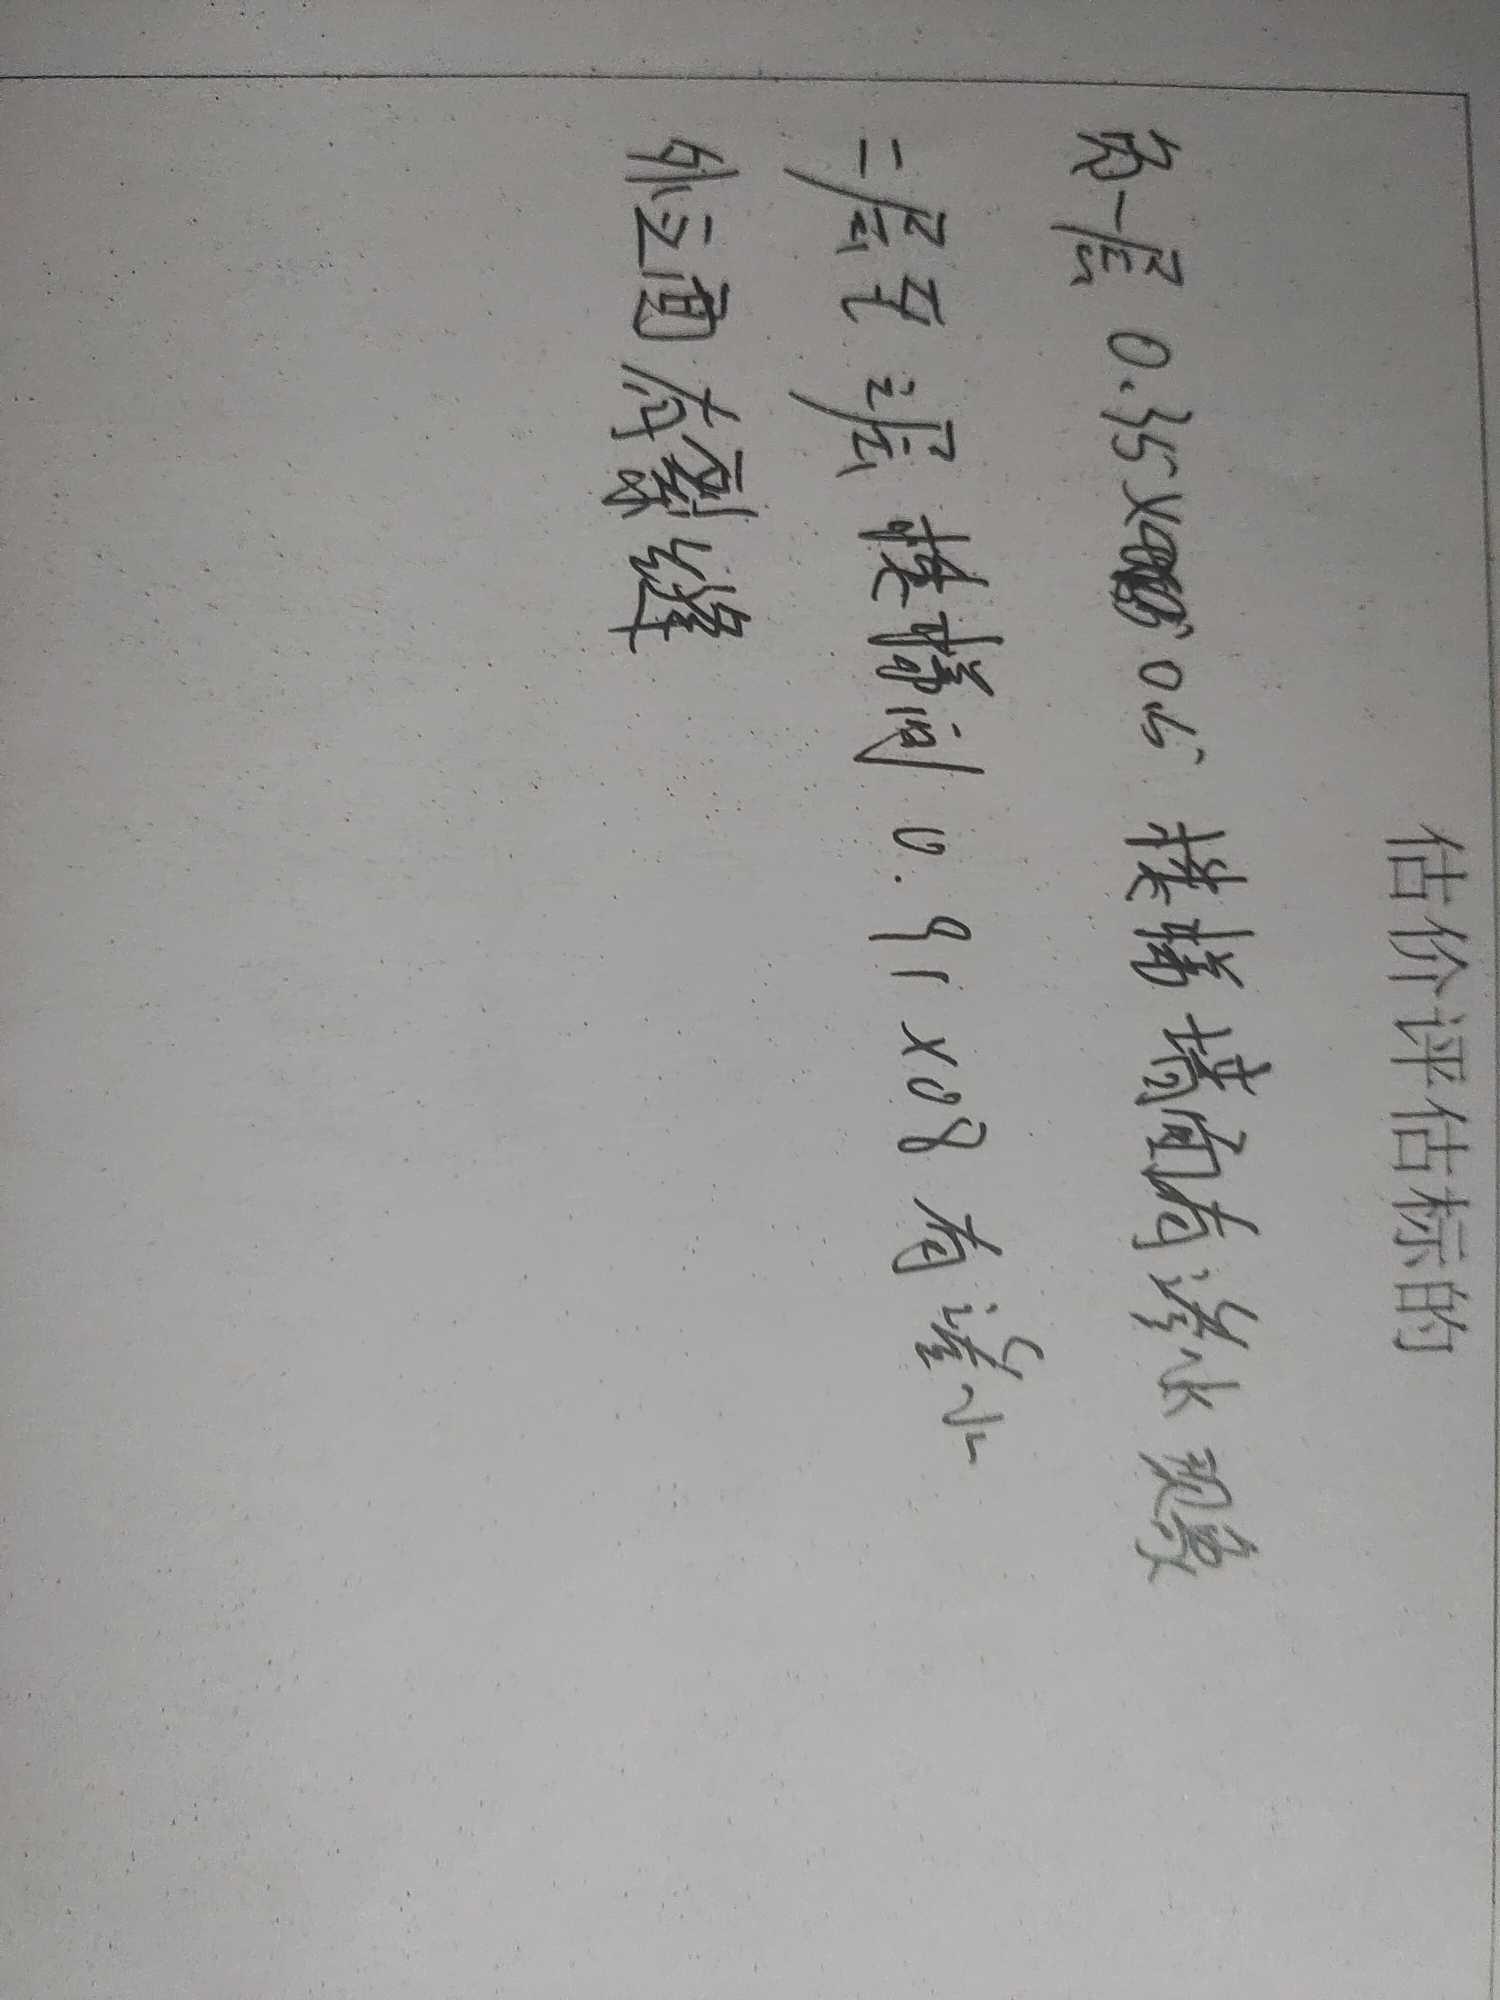 估价评估标的
负一层 0.35× 0.5 楼梯墙面有渗水现象
二层至三层 楼梯间 0.91×0.8 有渗水
外立面有裂缝